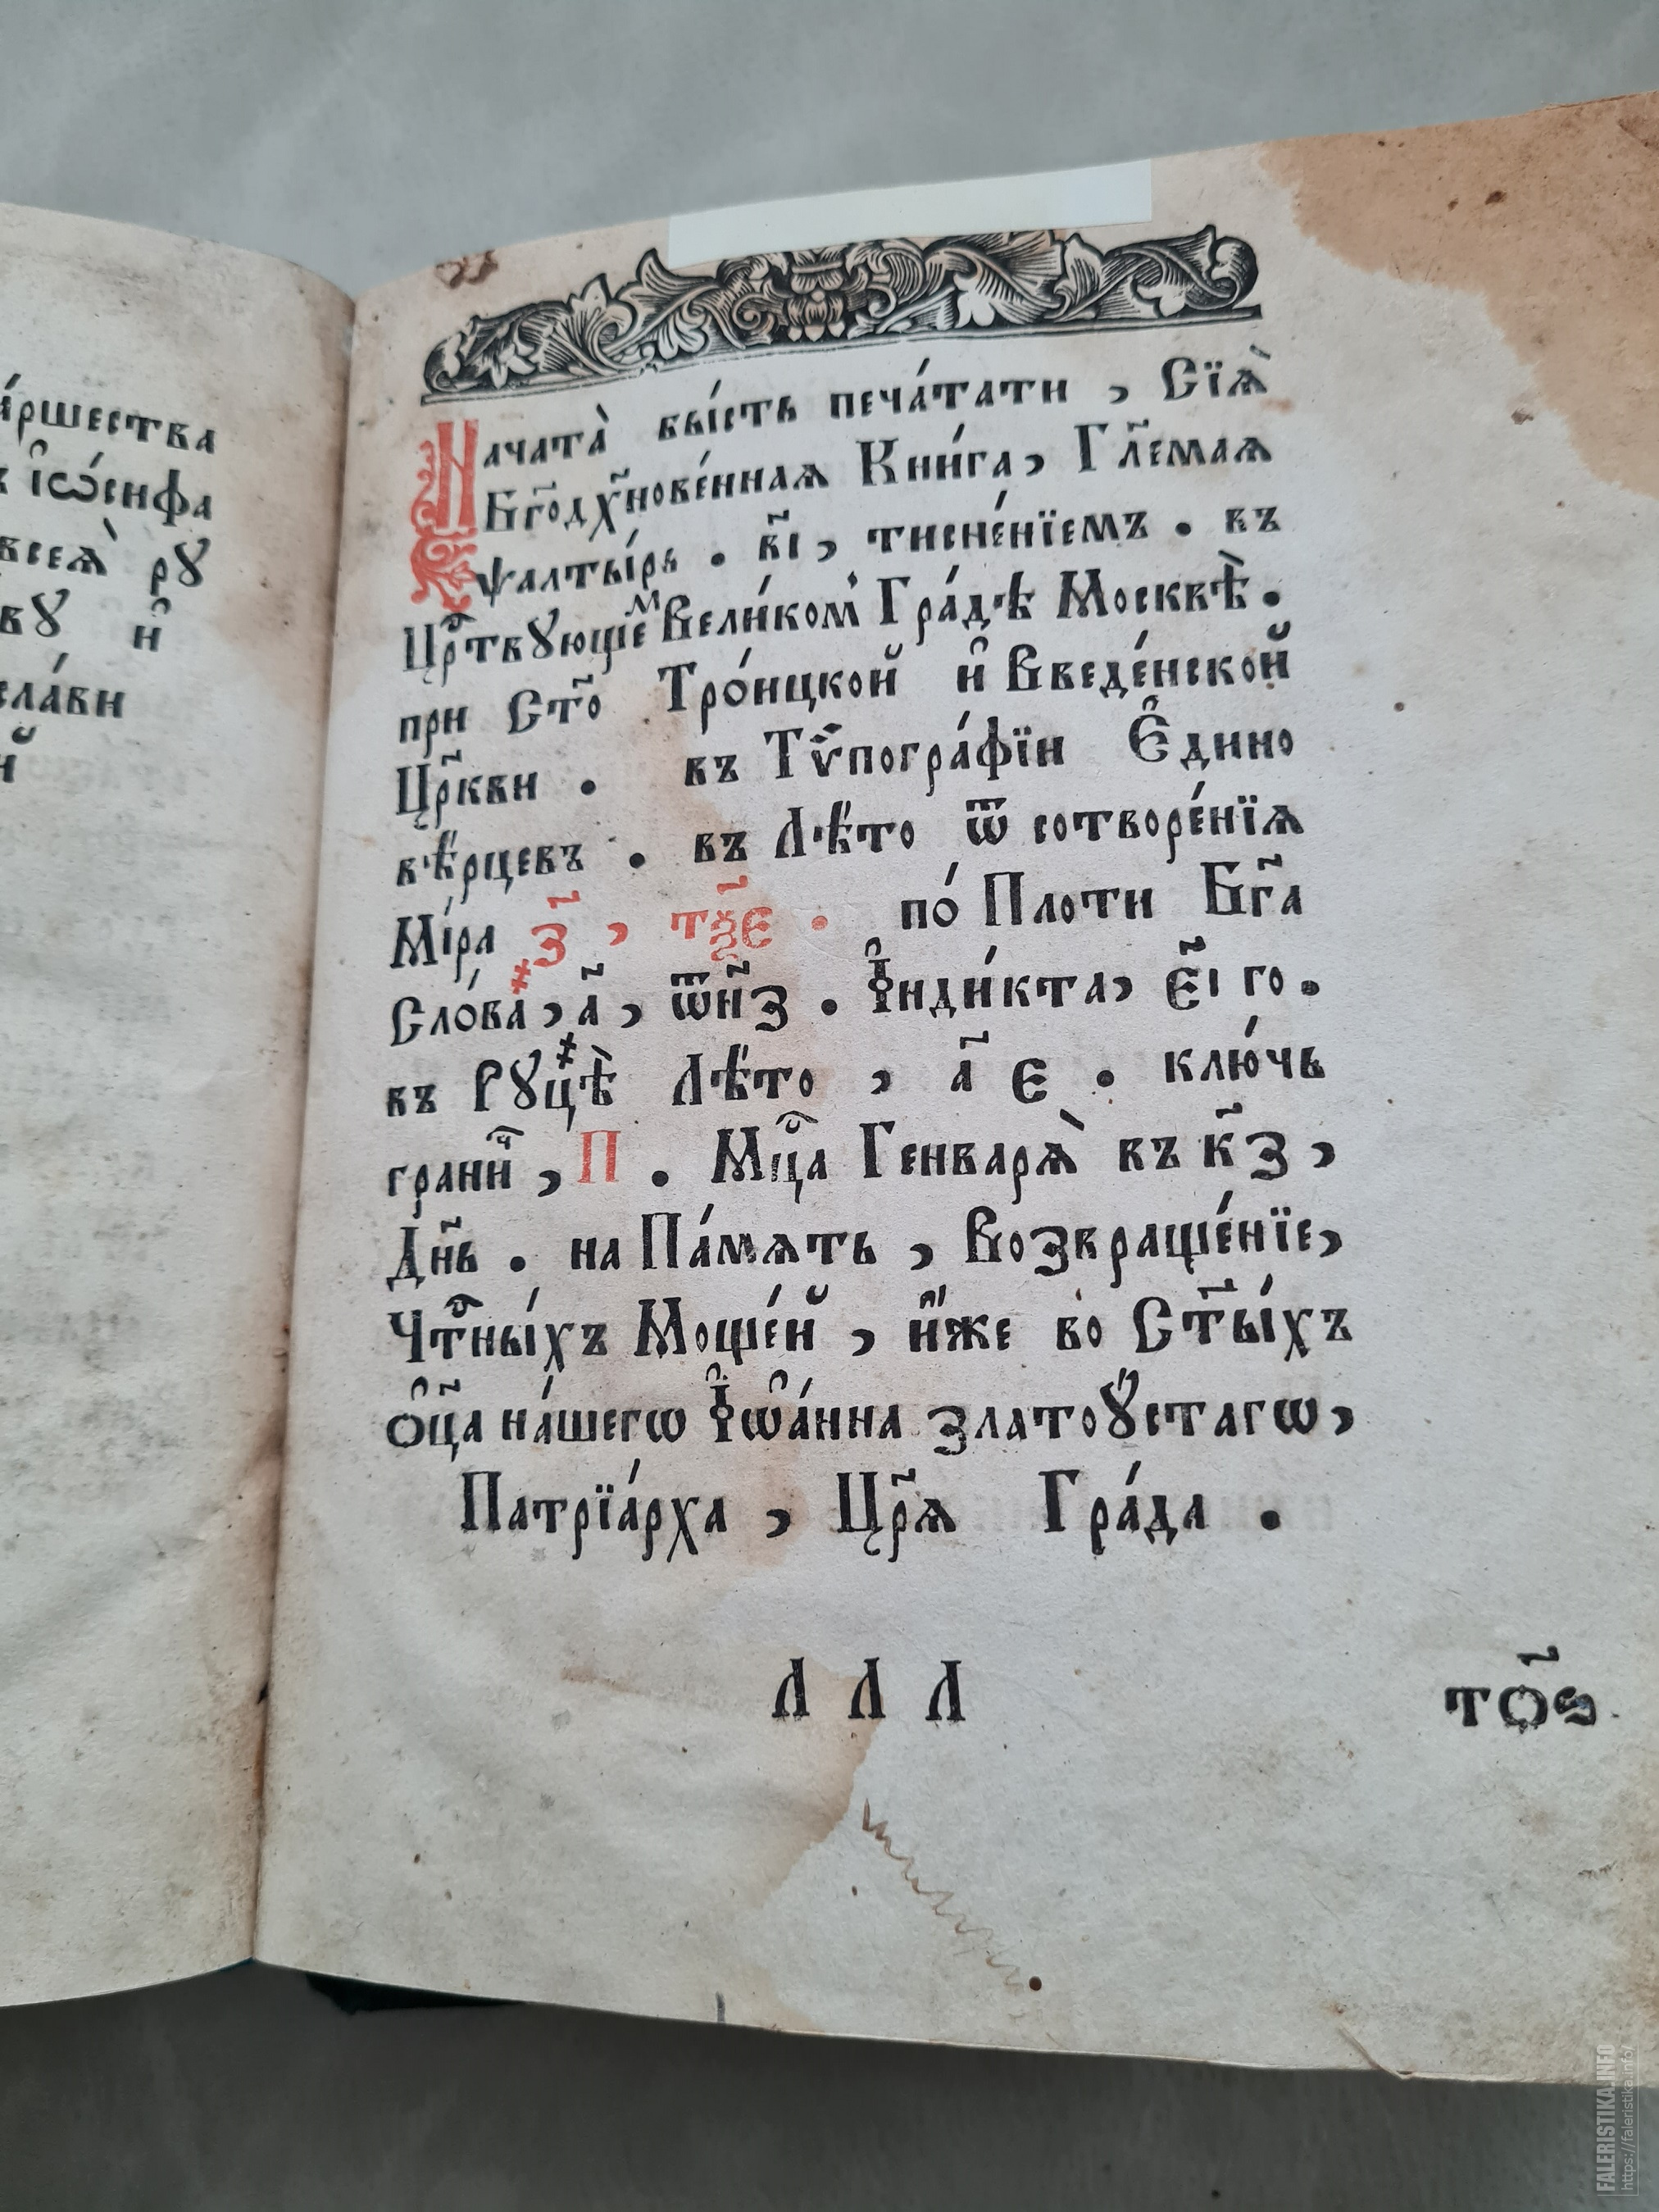 а́ршества
ꙇ҆ѡ́сифа
всеѧ̀ рꙋ
вꙋ и҆
сла́ви
Начата̀ бы́сть печа́тати , Сїѧ̀
Бг҃одх҃нове́ннаѧ Кни́га , Гл҃емаѧ
ѱалты́рь . в҃і , тисне́нїемъ . въ
Црⷭ҇твꙋющеⷨ Вели́ком̾ Гра́дѣ Москвѣ̀ .
при Ст҃о Тро́ицкой и҆ Введе́нской
Цр҃кви . въ Тѷпогра́фїи Є҆дино
вѣ́рцевъ . въ Лѣ́то ѿ сотворе́нїѧ
Мі́ра ҂з҃ , тѯ҃є . по́ Плоти Бг҃а
Сло́ва , ҂а҃ , ѿн҃з . І҆нди́кта , є҃і го .
въ Рꙋцѣ̀ Лѣ́то , а҃ є . клю́чь
грани́чⷩ , П . Мцⷭ҇а Генварѧ̀ въ к҃з ,
Дн҃ь . на Па́мѧть , Возвраще́нїе ,
Чтⷭ҇ны́хъ Моще́й , и҆́же во Ст҃ы́хъ
ѻ҆ц҃а на́шегѡ І҆ѡа́нна златоꙋ́стагѡ ,
Патрїа́рха , Цр҃ѧ Гра́да .
Л Л Л
то҃ѕ
FALERISTIKA.INFO
https://faleristika.info/